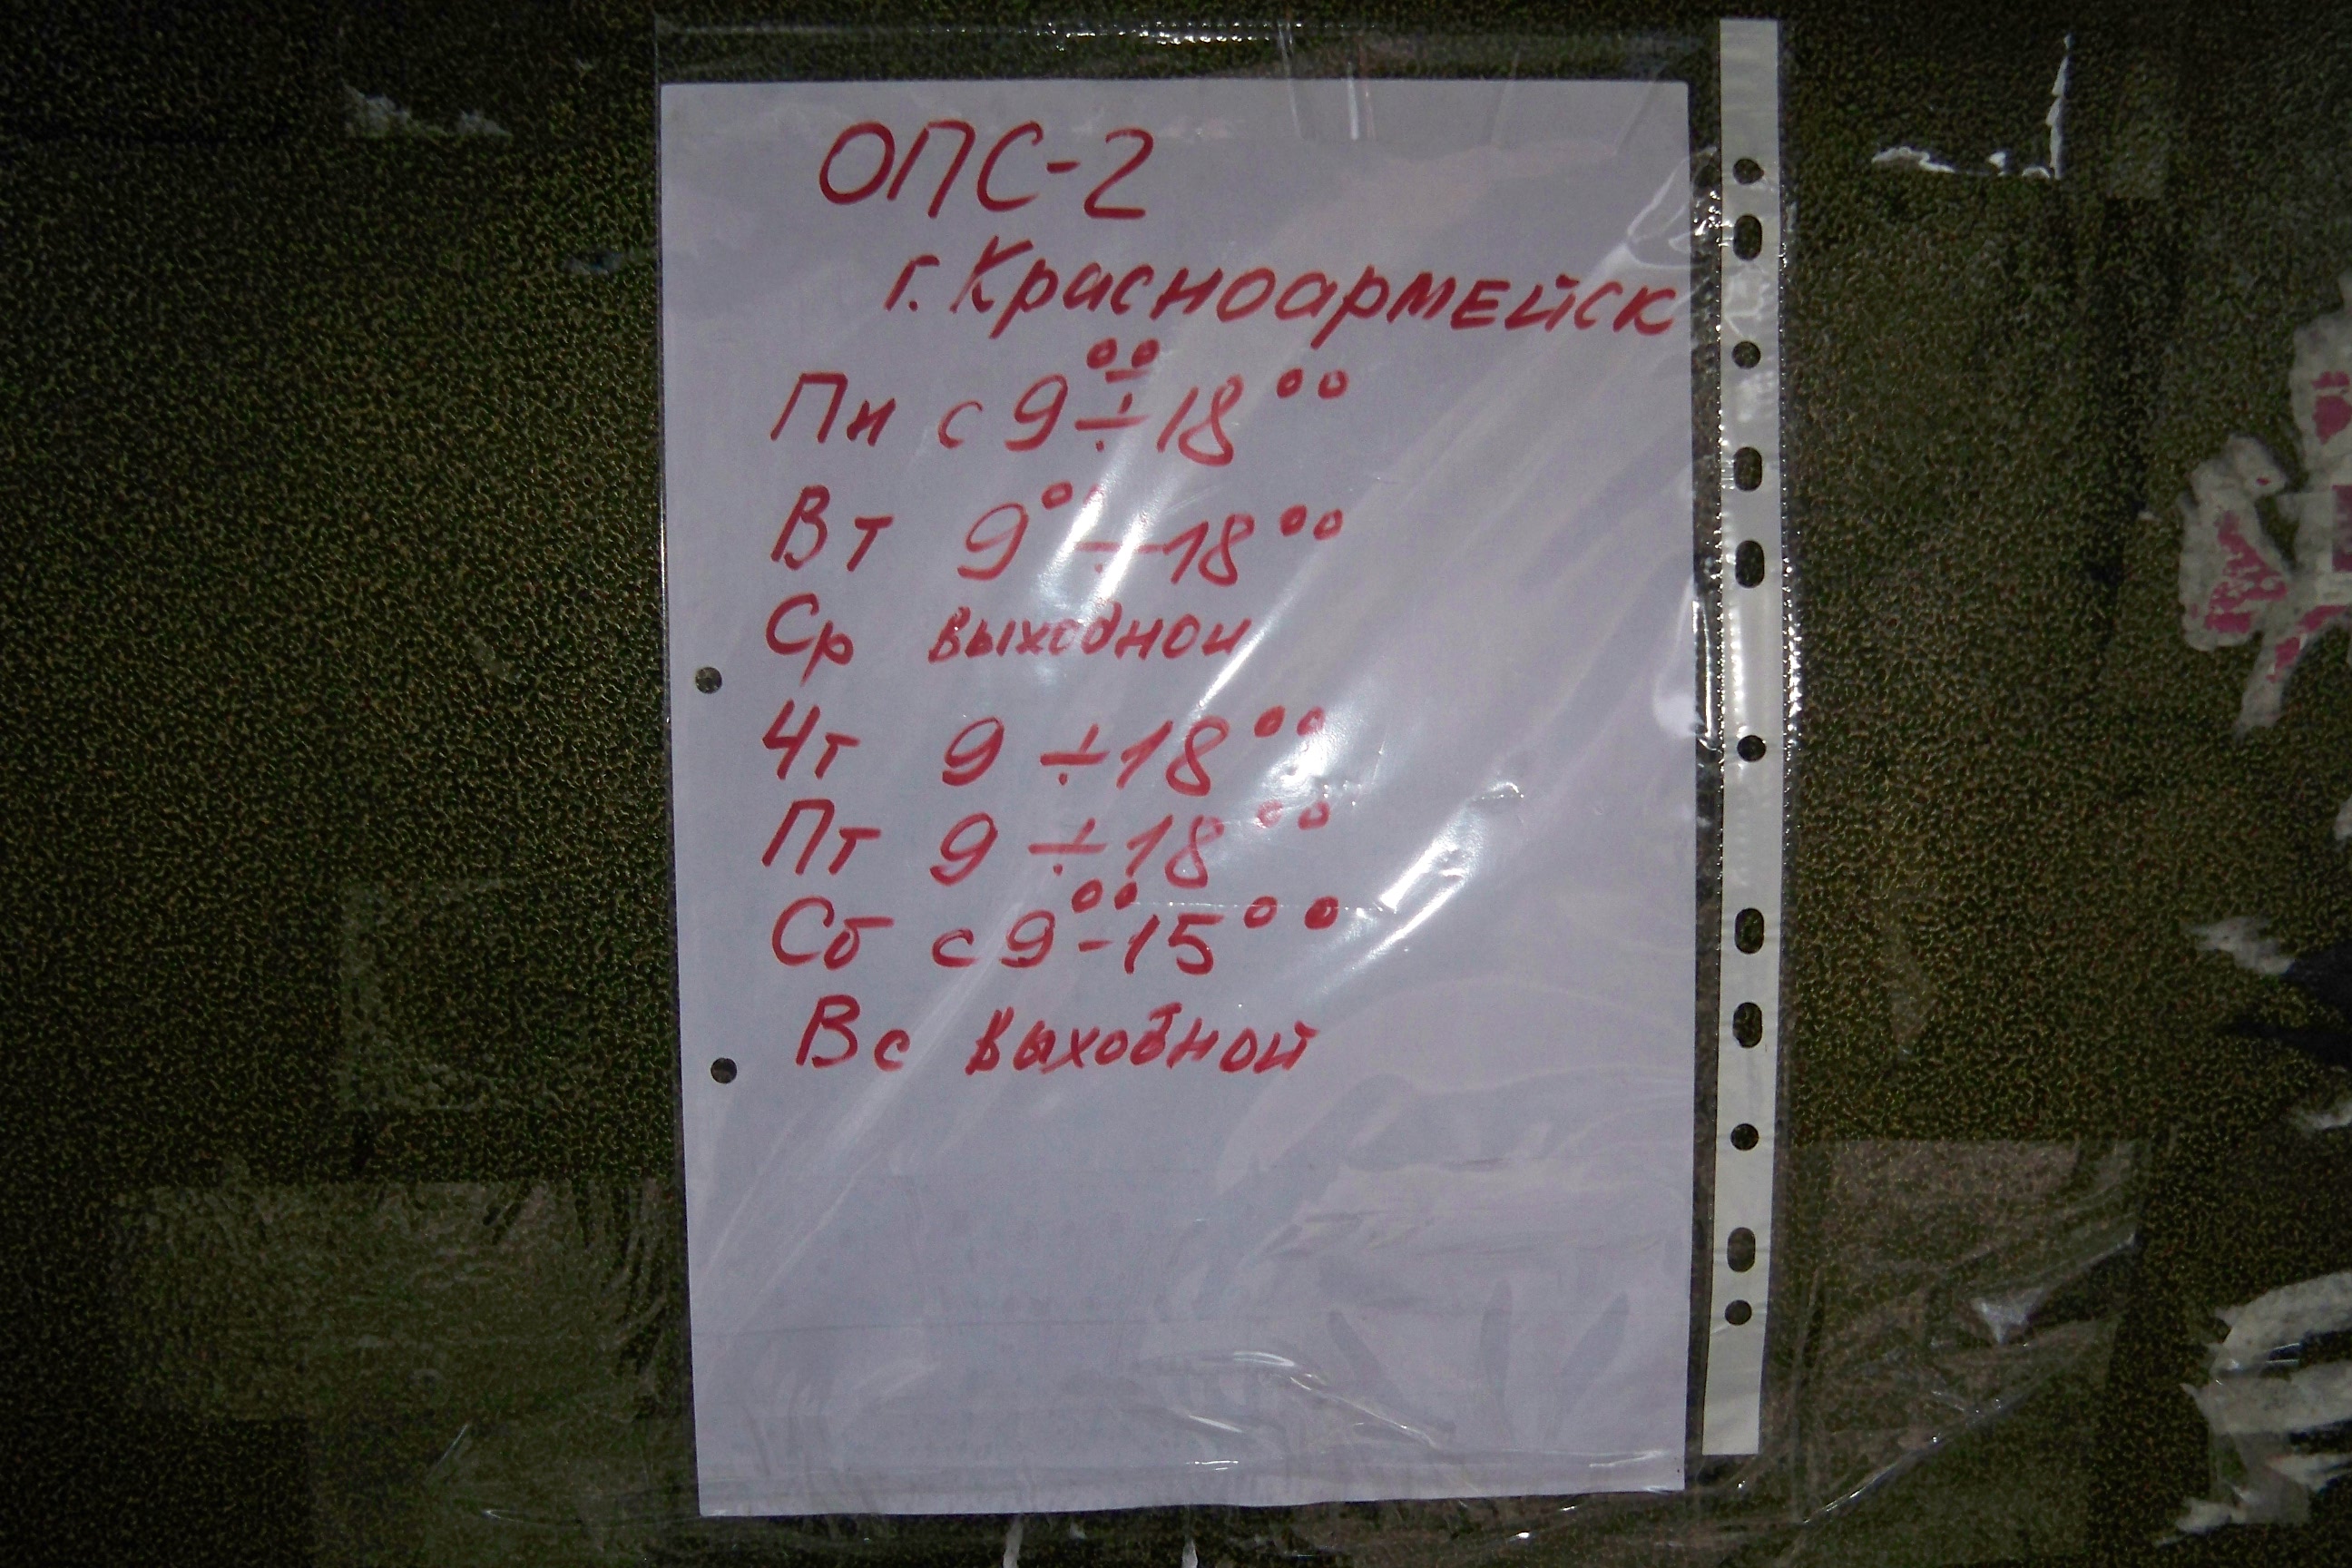 ОПС-2
г. Красноармейск
Пн с 9⁰⁰ ÷ 18⁰⁰
Вт 9⁰⁰ ÷ 18⁰⁰
Ср выходной
Чт 9 ÷ 18⁰⁰
Пт 9 ÷ 18⁰⁰
Сб с 9⁰⁰ - 15⁰⁰
Вс выходной